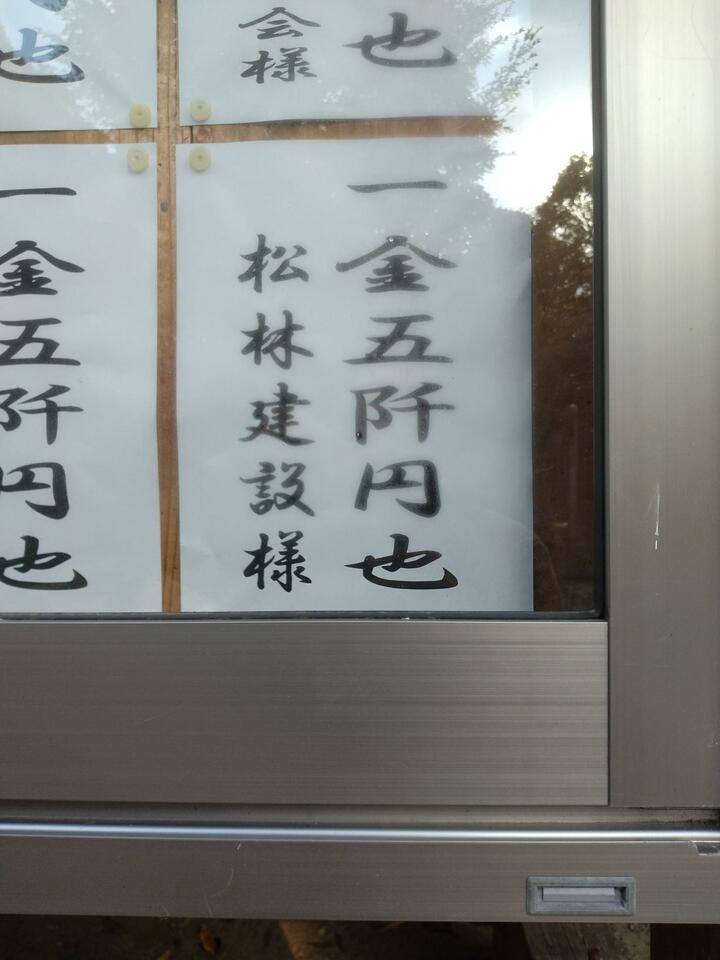 也
会様
也
一金五阡円也
松林建設様
一金五阡円也